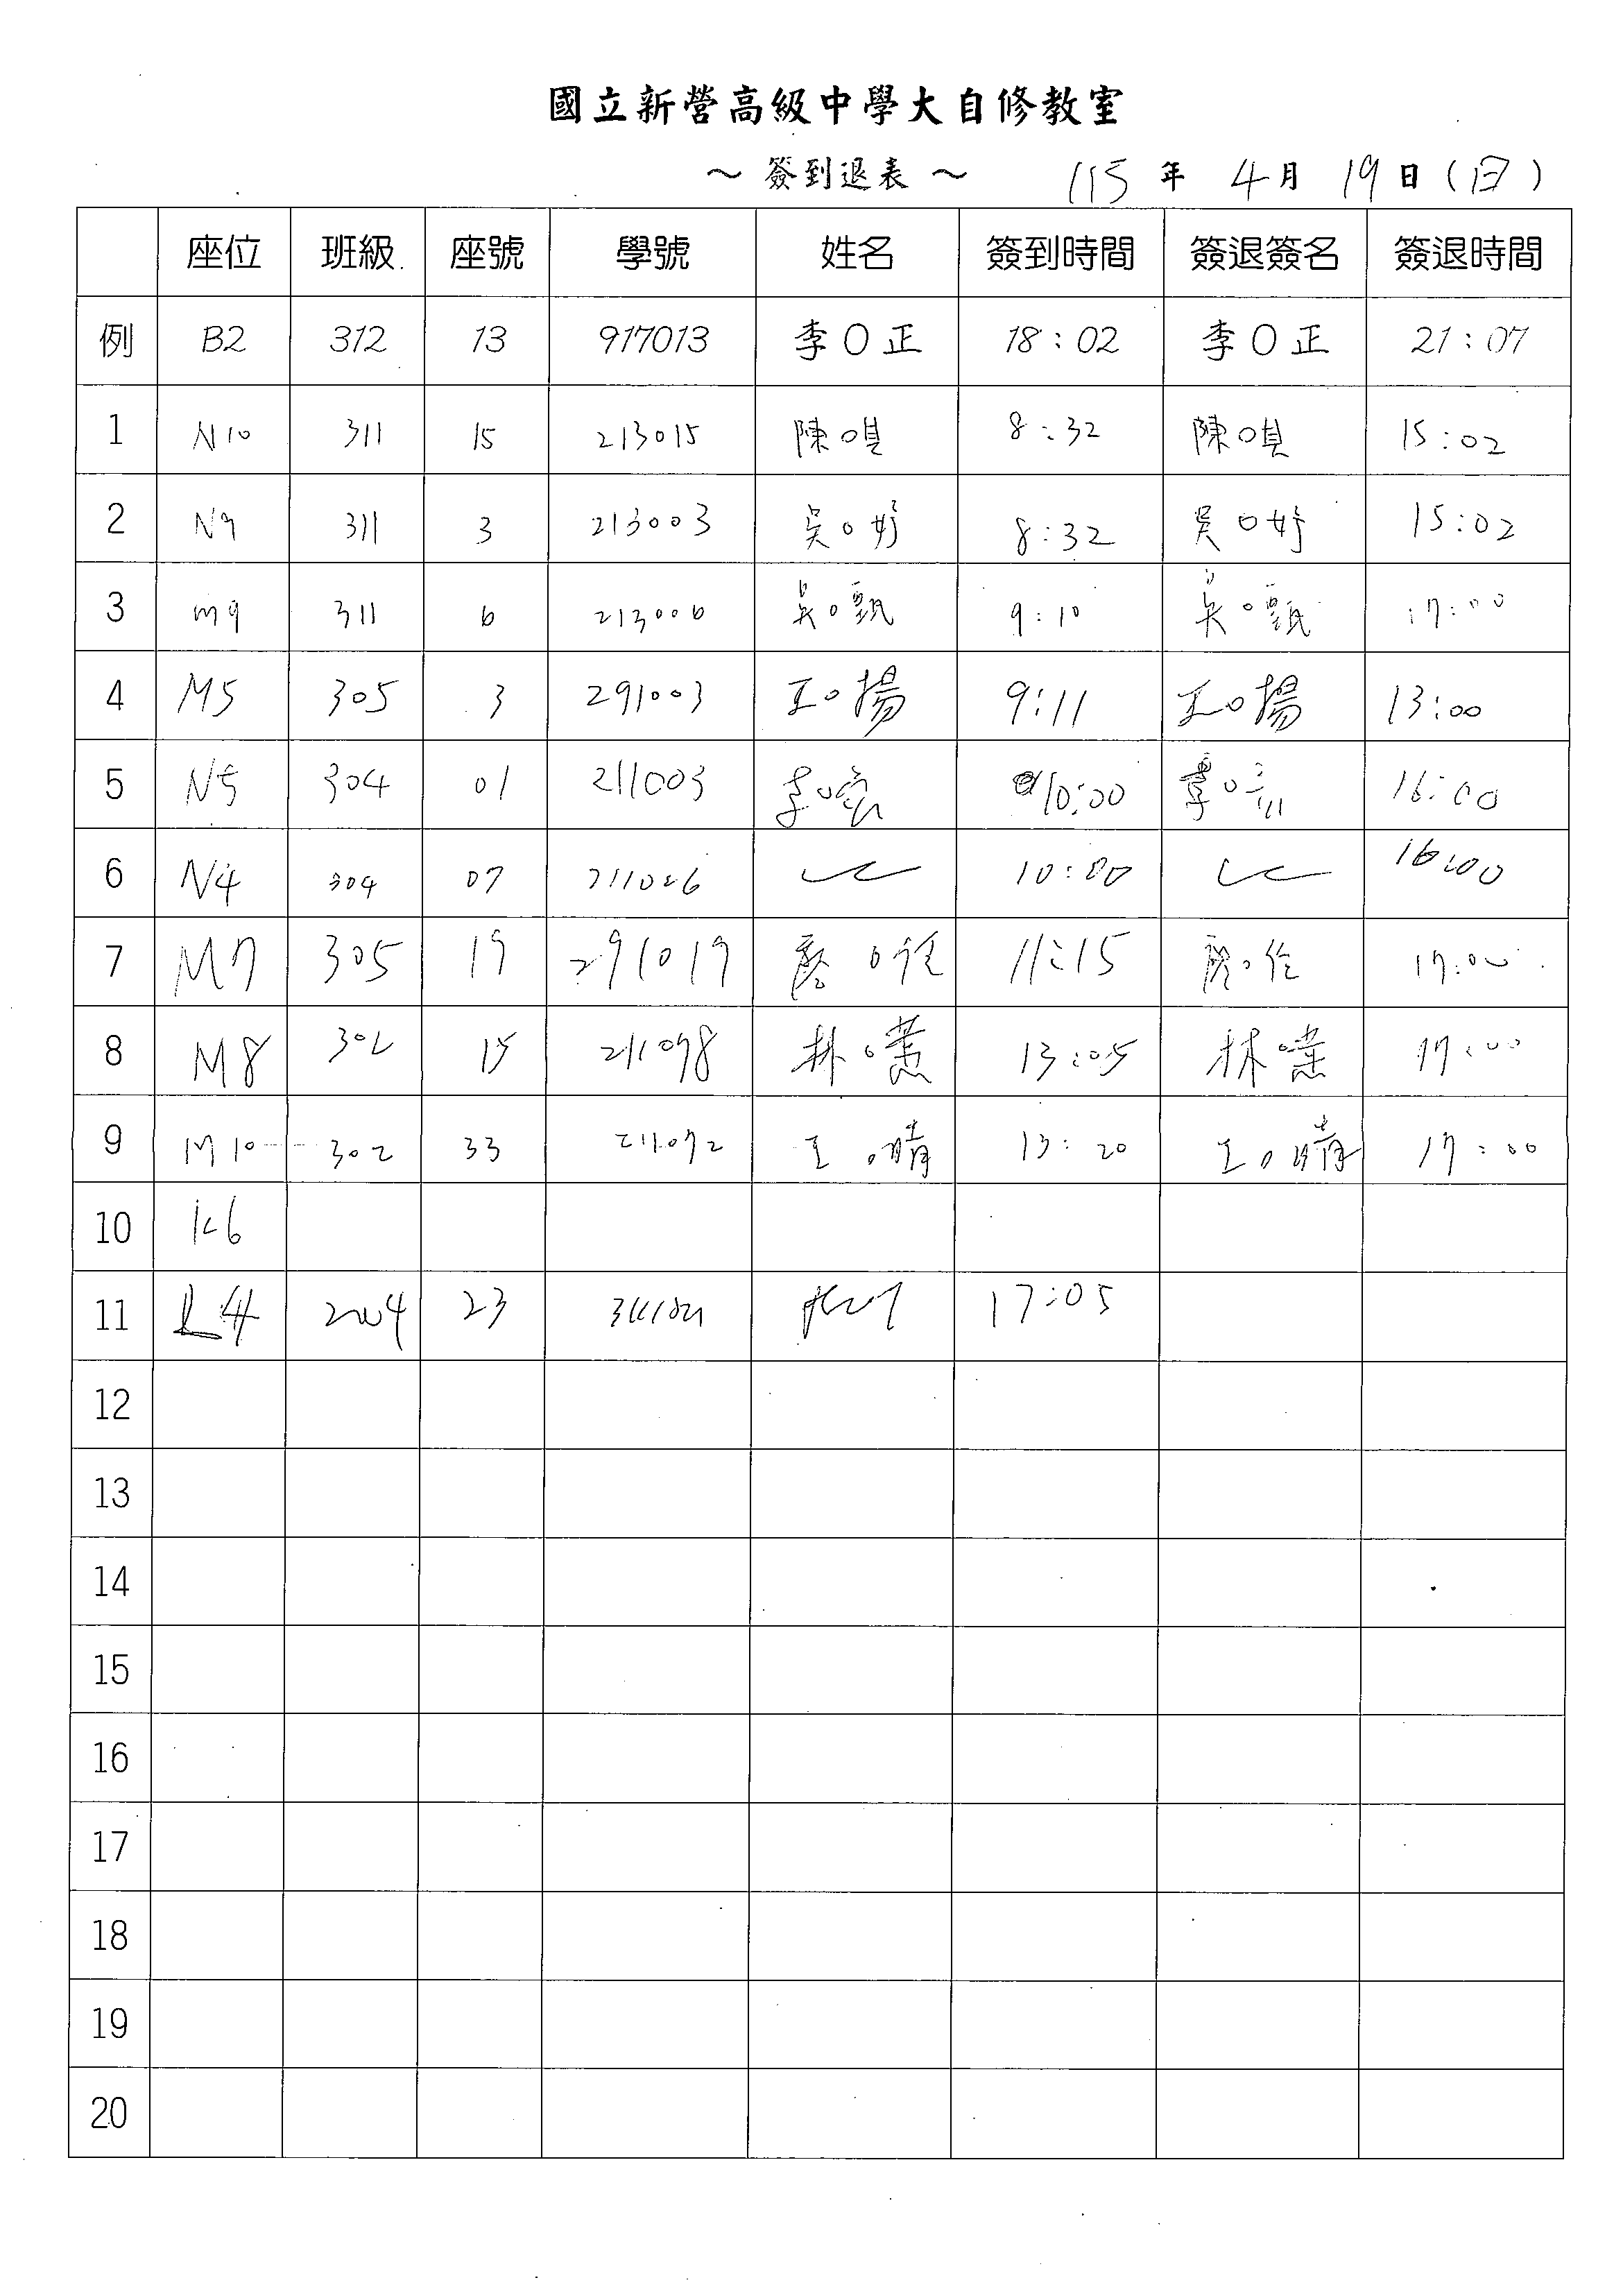 國立新營高級中學大自修教室
～ 簽到退表 ～ 115 年 4 月 19 日 ( 日 )
座位 班級 座號 學號 姓名 簽到時間 簽退簽名 簽退時間
例 B2 312 13 917013 李O正 18:02 李O正 21:07
1 N10 311 15 213015 陳O 8:32 陳O 15:02
2 N9 311 3 213003 吳O妤 8:32 吳O妤 15:02
3 m9 311 6 213006 吳O甄 9:10 吳O甄 17:00
4 M5 305 3 291003 王O揚 9:11 王O揚 13:00
5 N5 304 01 211003 李O 10:00 16:00
6 N4 304 07 10:00 16:00
7 M7 305 19 291019 廖O 11:15 廖O 17:00
8 M8 302 15 211098 林O蕙 13:05 林O蕙 17:00
9 M10 302 33 211072 王O晴 13:20 王O晴 17:00
10 K6
11 L4 204 23 17:05
12
13
14
15
16
17
18
19
20